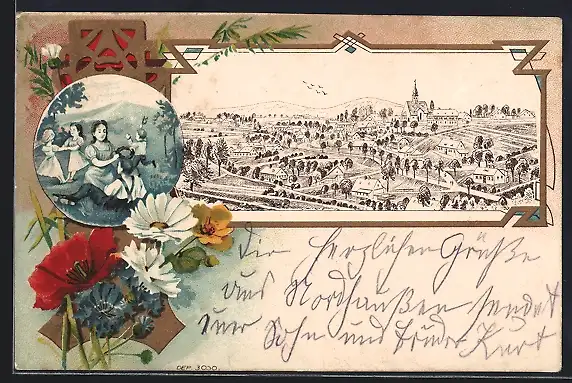 Die herzlichen Grüße
aus Nordhaußen sendet
Euer Sohn und Bruder Kurt
DEP. 3030.